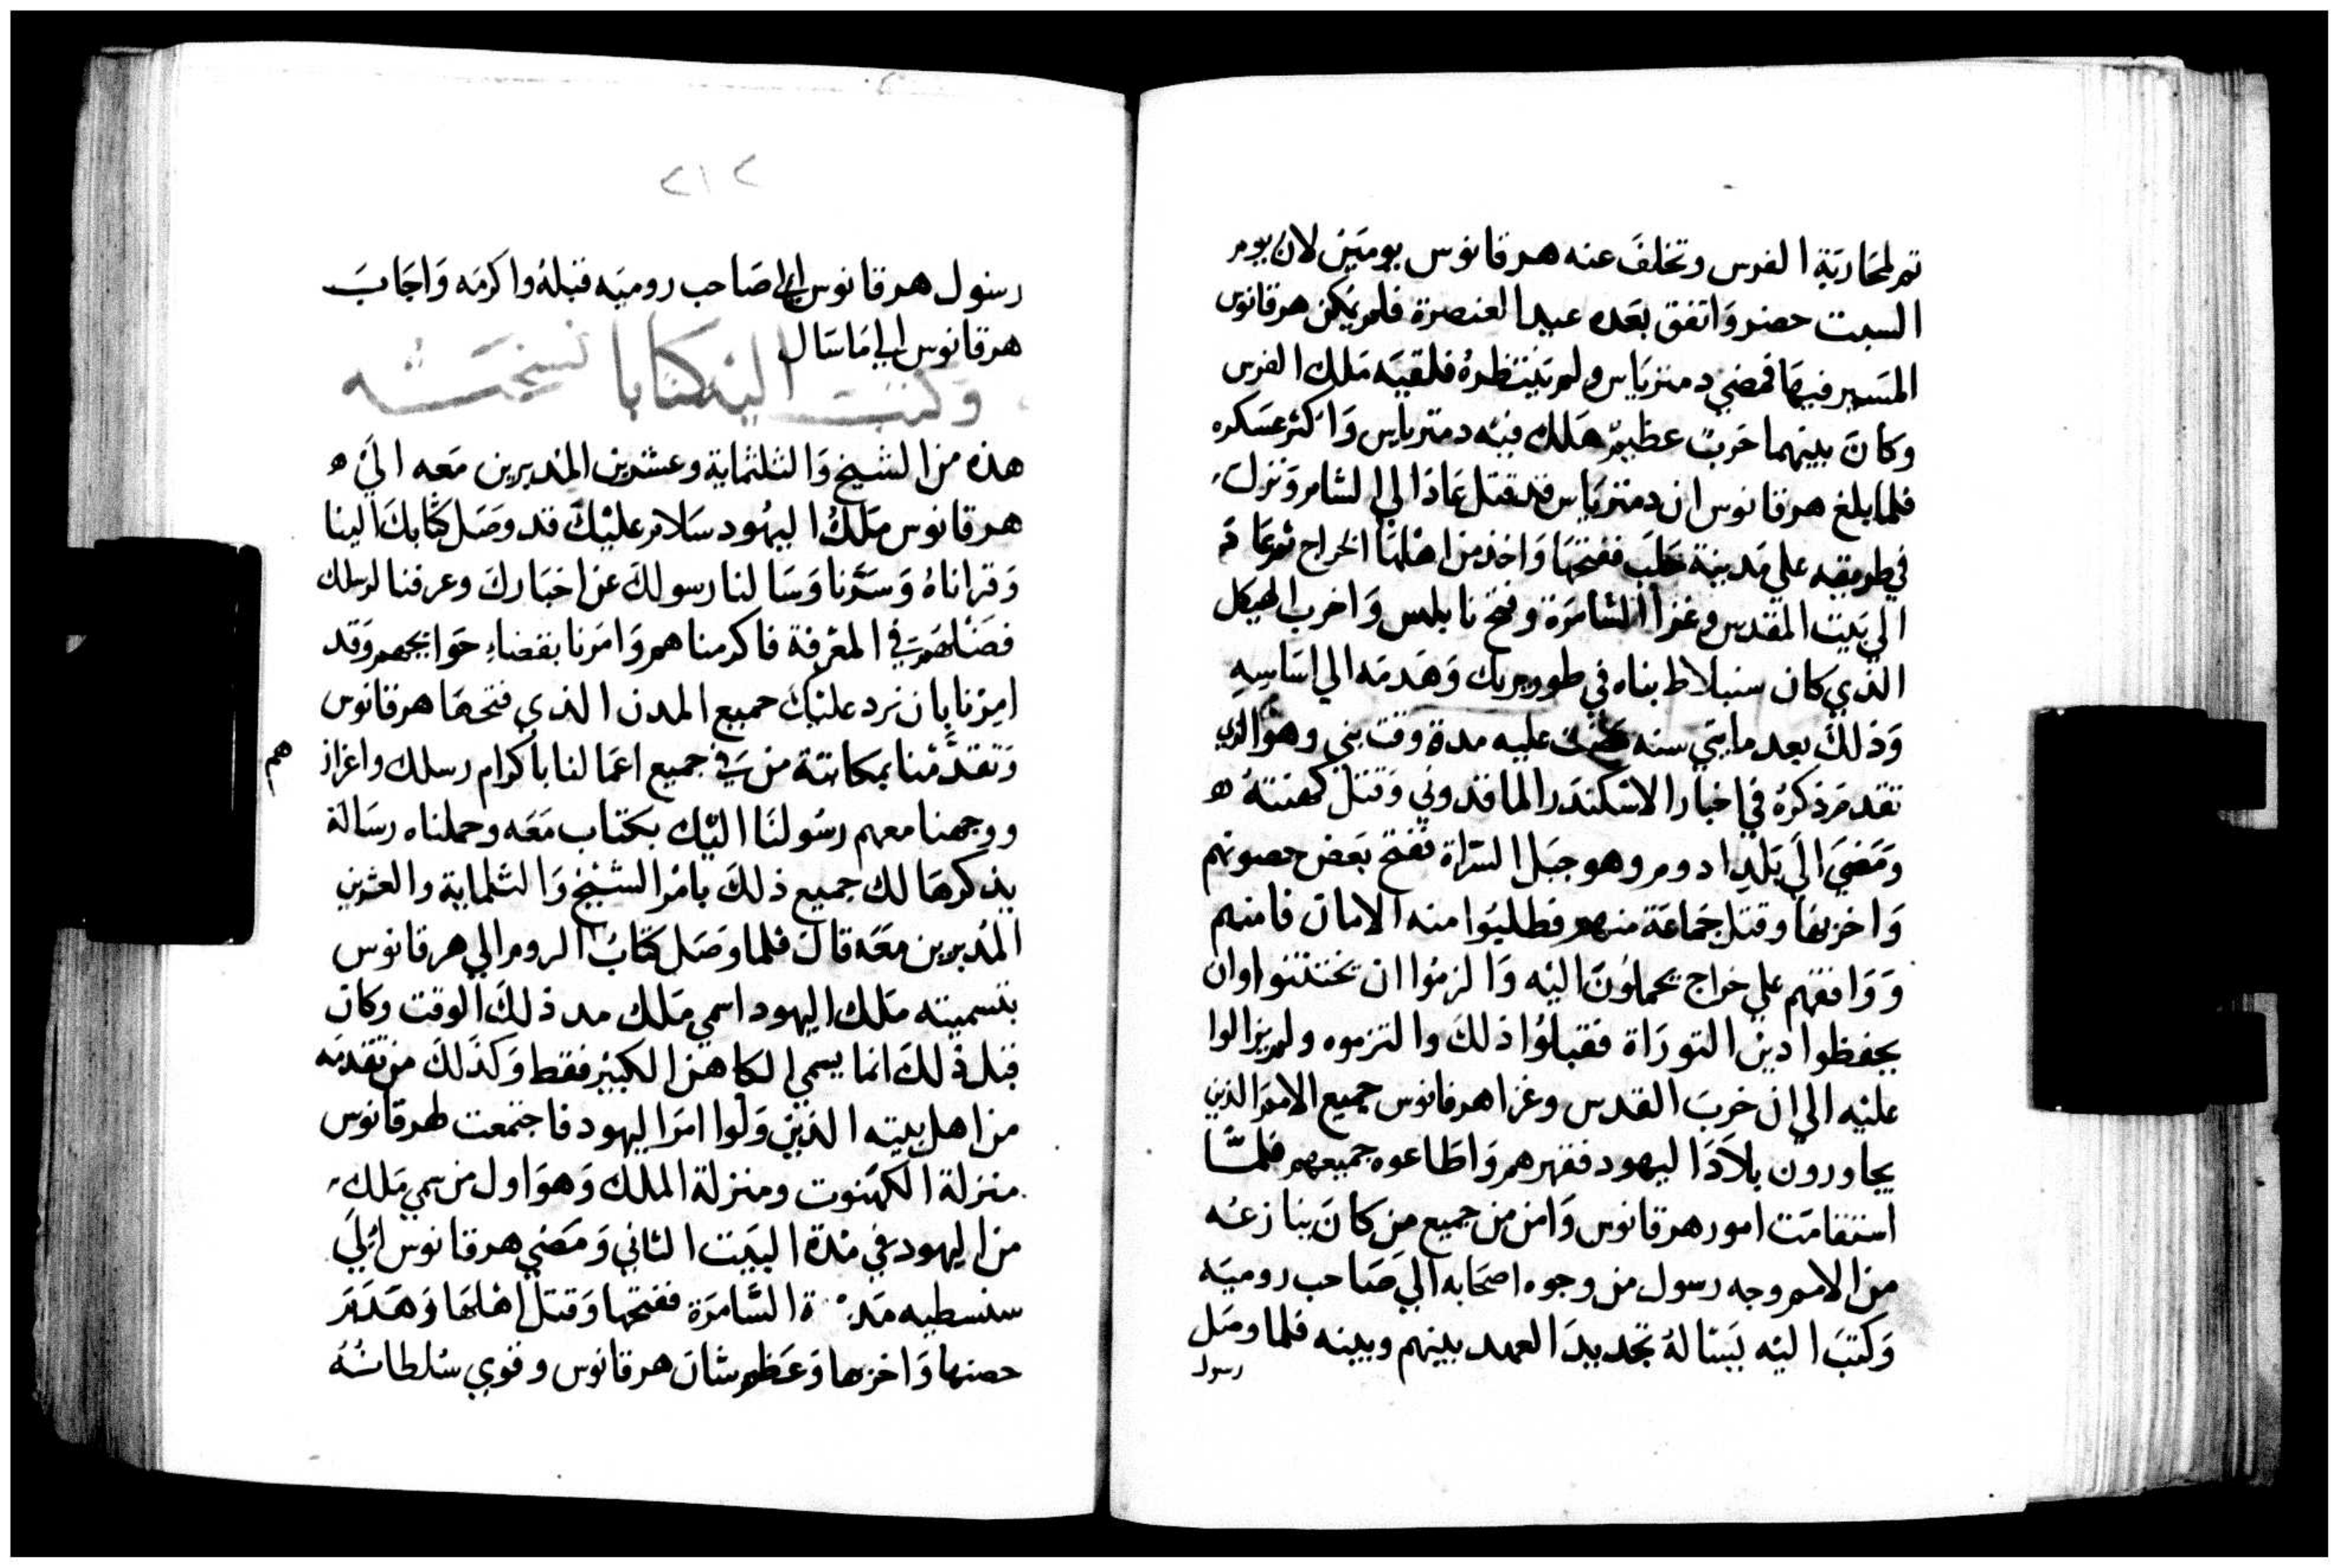 ثم لمحاربة الفرس وتخلف عنه هرقانوس يومين لان يوم
السبت حضر واتفق بعده عيد العنصرة فلم يكن هرقانوس
المسير فيها فمضي دمتریاس ولم ینتظره فلقیه ملك الفرس
وكان بينهما حرب عظيم هلك فيه دمترياس واكثر عسكره
فلما بلغ هرقانوس ان دمترياس قد قتل عاد الي الشام ونزل
في طريقه علي مدينة حلب ففتحها واخذ من اهلها الخراج ثم عاد
الي بيت المقدس وغزا السامرة وفتح نابلس واخرب الهيكل
الذي كان سنبلاط بناه في طور بريك وهدمه الي اساسه
وذلك بعد مايتي سنه مضت عليه مدة وقت بني وهو الذي
تقدم ذكره في اخبار الاسكندر الماقدوني وقتل كهنته ه
ومضي الي بلد ادوم وهو جبل السراة ففتح بعض حصونهم
واخربها وقتل جماعة منهم فطلبوا منه الامان فامنهم
ووافقهم علي خراج يحملون اليه والزموا ان يختتنوا وان
يحفظوا دين التوراة فقبلوا ذلك والتزموه ولم يزالوا
عليه الي ان خرب القدس وغزا هرقانوس جميع الامم الذين
يجاورون بلاد اليهود فقهرهم واطاعوه جميعهم فلما
استقامت امور هرقانوس وامن من جميع من كان ينازعه
من الامم وجه رسول من وجوه اصحابه الي صاحب روميه
وكتب اليه يساله تجديد العهد بينهم وبينه فلما وصل
رسول
٢١٢
رسول هرقانوس الي صاحب روميه قبله واكرمه واجاب
هرقانوس الي ما سال
وكتب اليه كتابا نسخته
هذه من الشيخ والثلثماية وعشرين المدبرين معه الي ه
هرقانوس ملك اليهود سلام عليك قد وصل كتابك الينا
وقراناه وسرنا وسالنا رسولك عن اخبارك وعرفنا لرسلك
فضلهم في المعرفة فاكرمناهم وامرنا بقضاء حوايجهم وقد
امرنا بان نرد عليك جميع المدن الذي فتحها هرقانوس
وتقدمنا بمكاتبة من في جميع اعمالنا باكرام رسلك واعزاز
هم
ووجهنا معهم رسولنا اليك بكتاب معه وحملناه رسالة
يذكرها لك جميع ذلك بامر الشيخ والثلماية والعشرين
المدبرين معه قال فلما وصل كتاب الروم الي هرقانوس
بتسميته ملك اليهود اسمي ملك مد ذلك الوقت وكان
قبل ذلك انما يسمي الكاهن الكبير فقط وكذلك من تقدمه
من اهل بيته الذين ولوا امر اليهود فاجتمعت لهرقانوس
منزلة الكهنوت ومنزلة الملك وهو اول من سمي ملك
من اليهود في مدة البيت الثاني ومضي هرقانوس الي
سنسطيه السامرة ففتحها وقتل اهلها وهدم
حصنها واخربها وعظم شان هرقانوس وقوي سلطانه